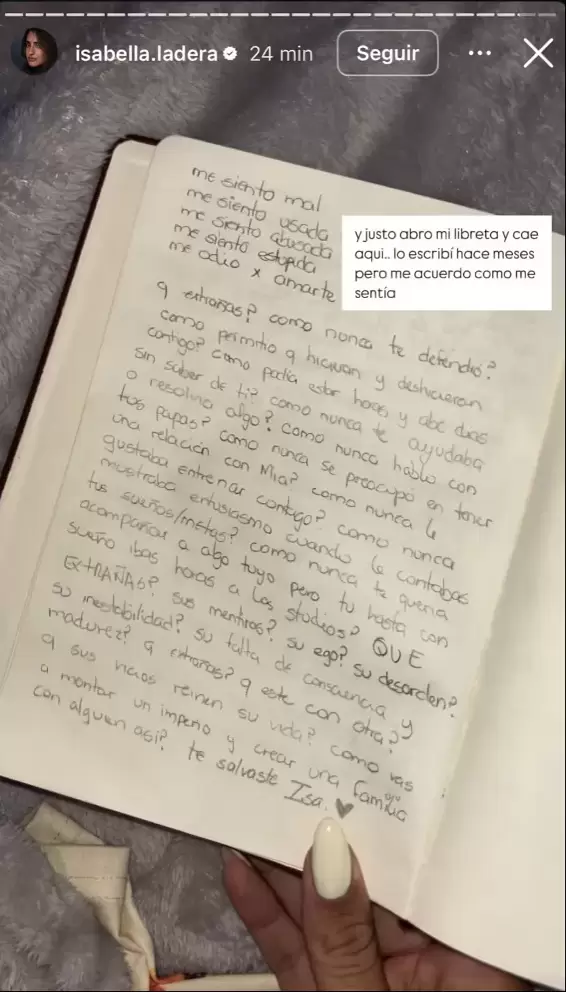 isabella.ladera 24 min Seguir
y justo abro mi libreta y cae
aqui.. lo escribí hace meses
pero me acuerdo como me
sentía
me siento mal
me siento usada
me siento abusada
me siento estupida
me odio x amarte
q extrañas? como nunca te defendió?
como permitio q hicieran y deshicieran
contigo? como podía estar horas y abc dias
sin saber de ti? como nunca te ayudaba
o resolvio algo? como nunca hablo con
tus papas? como nunca se preocupó en tener
una relación con Mia? como nunca le
gustaba entrenar contigo? como nunca
mostraba entusiasmo cuando le contabas
tus sueños/metas? como nunca te queria
acompañar a algo tuyo pero tu hasta con
sueño ibas horas a los studios? QUE
EXTRAÑAS? sus mentiras? su ego? su desorden?
su inestabilidad? su falta de consciencia y
madurez? q extrañas? q este con otra?
q sus vicios reinen su vida? como vas
a montar un imperio y crear una familia
con alguien asi? te salvaste Isa. ♥